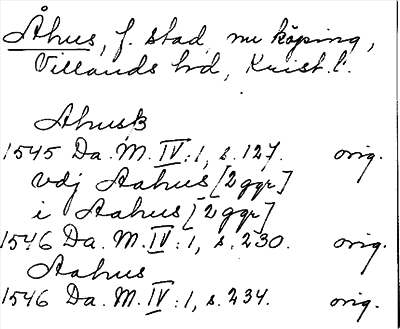 Åhus, f. stad, nu köping,
Villands hd, Krist. l.
Ahusß
1545 Da. M. IV:1, s. 127. orig.
vdj Aahus [2 ggr]
i Aahus [2 ggr]
1546 Da. M. IV:1, s. 230. orig.
Aahus
1546 Da. M. IV:1, s. 234. orig.